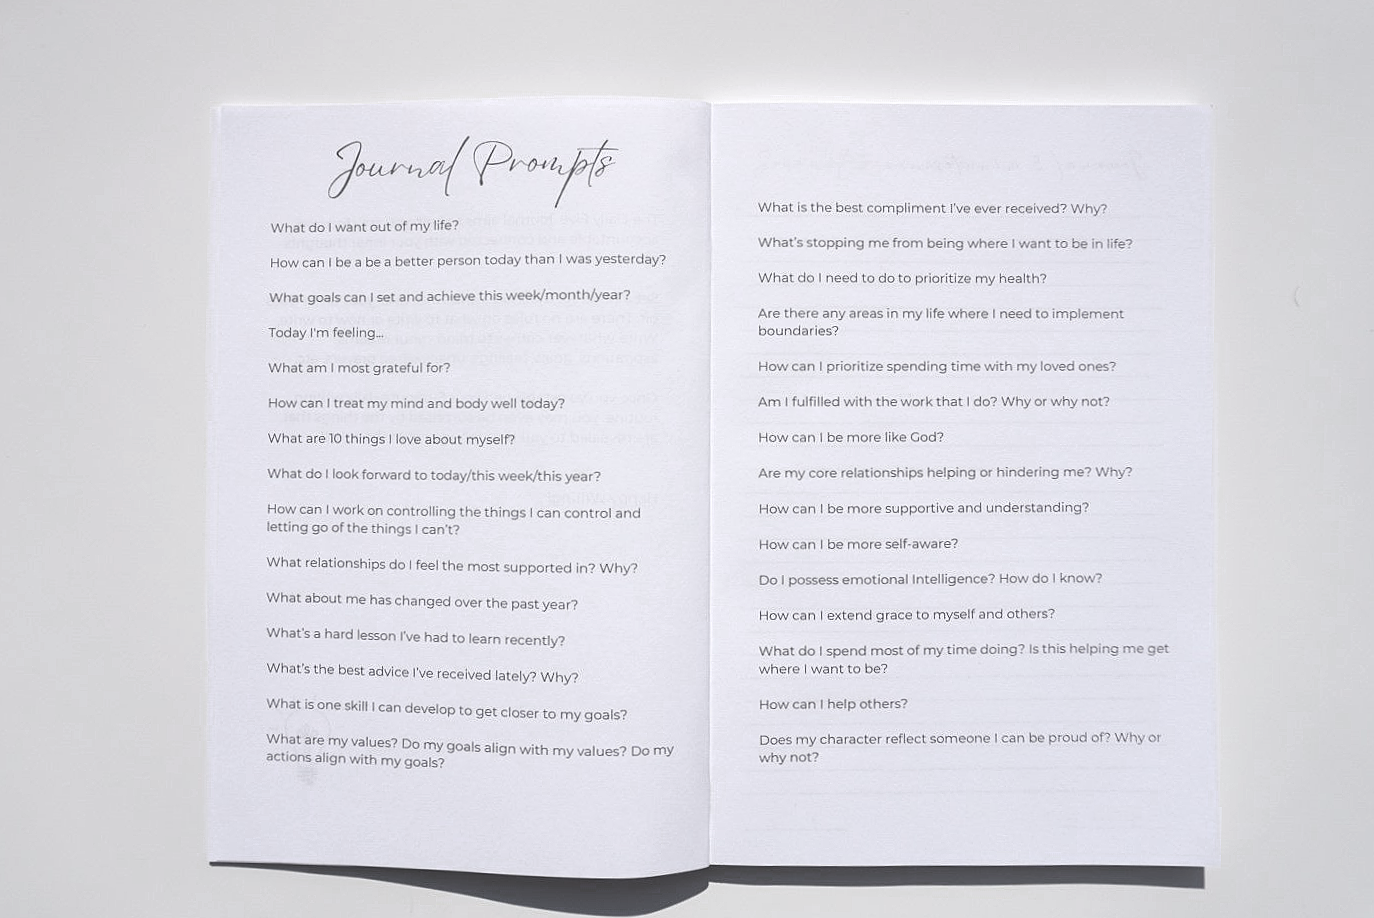 Journal Prompts
What do I want out of my life?
How can I be a be a better person today than I was yesterday?
What goals can I set and achieve this week/month/year?
Today I'm feeling...
What am I most grateful for?
How can I treat my mind and body well today?
What are 10 things I love about myself?
What do I look forward to today/this week/this year?
How can I work on controlling the things I can control and
letting go of the things I can't?
What relationships do I feel the most supported in? Why?
What about me has changed over the past year?
What's a hard lesson I've had to learn recently?
What's the best advice I've received lately? Why?
What is one skill I can develop to get closer to my goals?
What are my values? Do my goals align with my values? Do my
actions align with my goals?
What is the best compliment I've ever received? Why?
What's stopping me from being where I want to be in life?
What do I need to do to prioritize my health?
Are there any areas in my life where I need to implement
boundaries?
How can I prioritize spending time with my loved ones?
Am I fulfilled with the work that I do? Why or why not?
How can I be more like God?
Are my core relationships helping or hindering me? Why?
How can I be more supportive and understanding?
How can I be more self-aware?
Do I possess emotional Intelligence? How do I know?
How can I extend grace to myself and others?
What do I spend most of my time doing? Is this helping me get
where I want to be?
How can I help others?
Does my character reflect someone I can be proud of? Why or
why not?